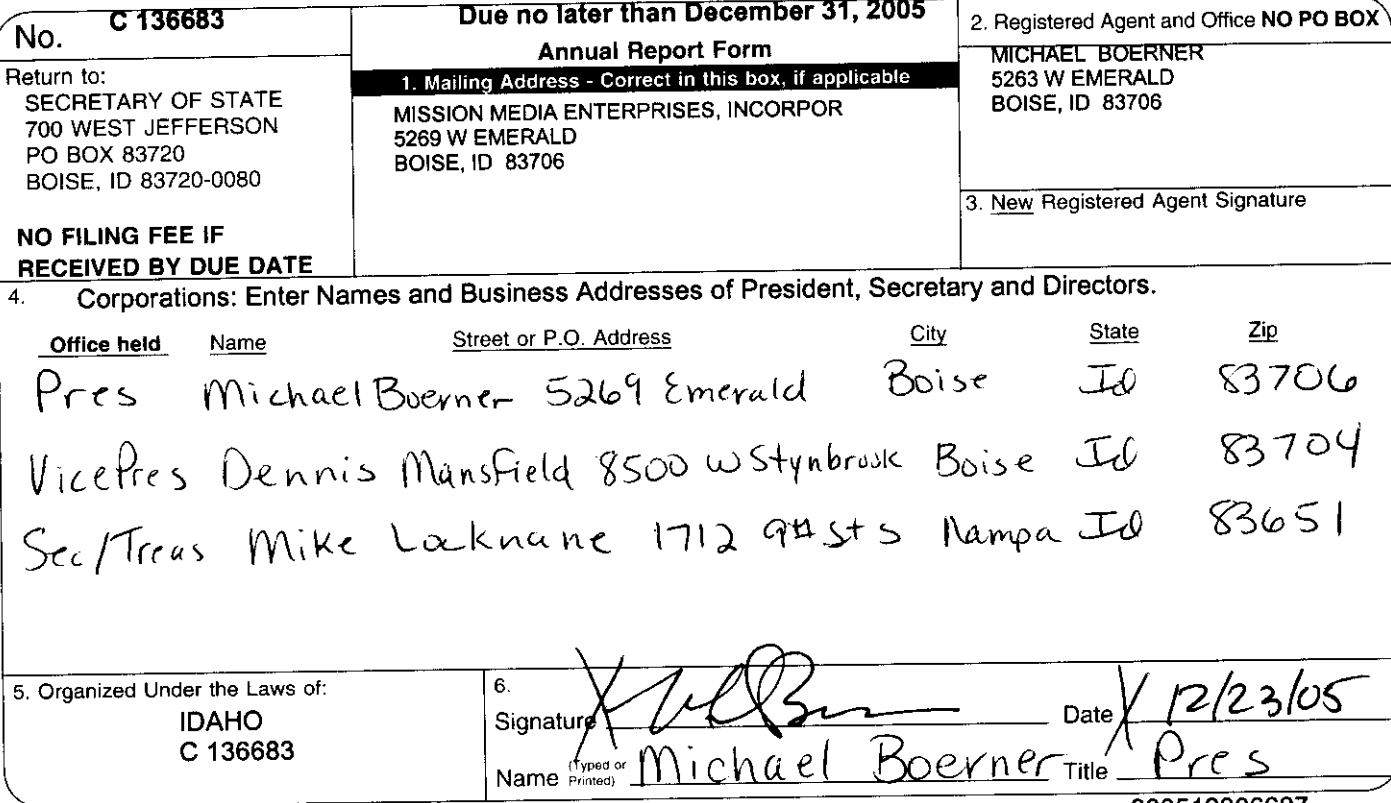 No. C 136683
Due no later than December 31, 2005
Annual Report Form
Return to:
SECRETARY OF STATE
700 WEST JEFFERSON
PO BOX 83720
BOISE, ID 83720-0080
NO FILING FEE IF
RECEIVED BY DUE DATE
1. Mailing Address - Correct in this box, if applicable
MISSION MEDIA ENTERPRISES, INCORPOR
5269 W EMERALD
BOISE, ID 83706
2. Registered Agent and Office NO PO BOX
MICHAEL BOERNER
5263 W EMERALD
BOISE, ID 83706
3. New Registered Agent Signature
4. Corporations: Enter Names and Business Addresses of President, Secretary and Directors.
Office held Name Street or P.O. Address City State Zip
Pres Michael Boerner 5269 Emerald Boise Id 83706
Vice Pres Dennis Mansfield 8500 W Stynbrook Boise Id 83704
Sec/Treas Mike Locknane 1712 9th St S Nampa Id 83651
5. Organized Under the Laws of:
IDAHO
C 136683
6.
Signature X Date X 12/23/05
Name (Typed or Printed) Michael Boerner Title Pres